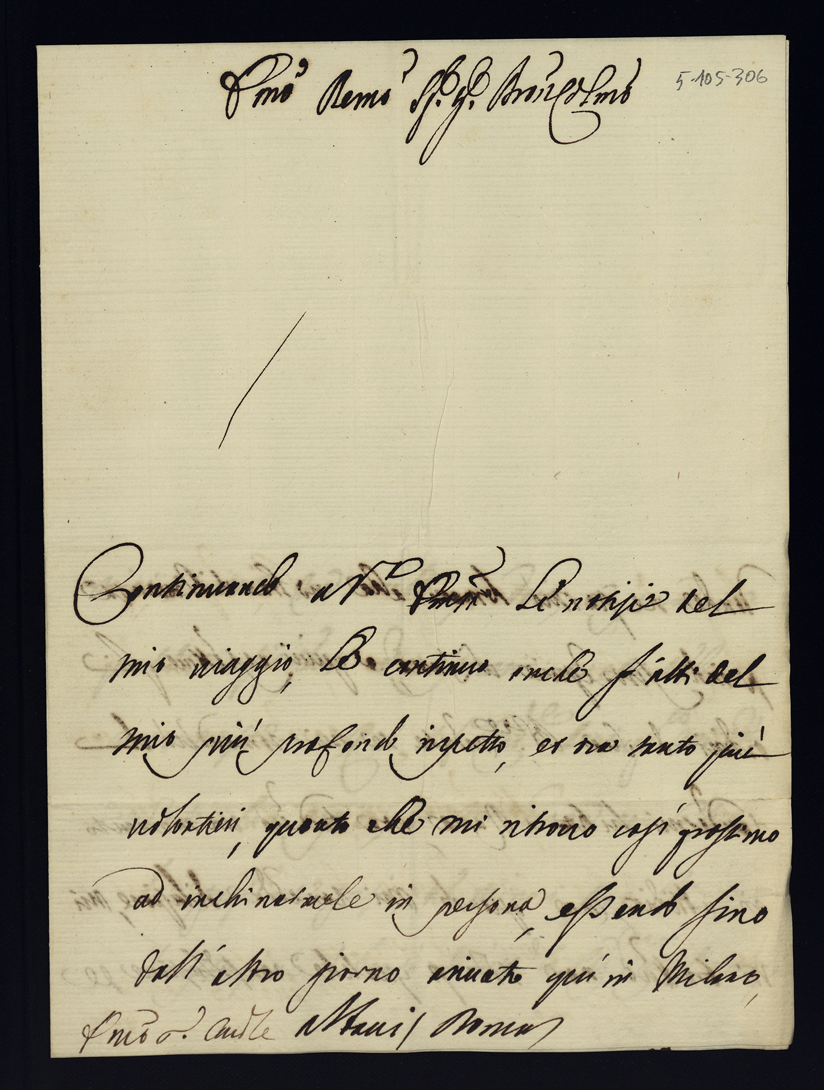 Emo Remo Sr. Pr. Pron Colmo 5-105-306
Continuando a V. Em. le notizie del
mio viaggio, le continuo anche gl'atti del
mio più profondo rispetto, et ora tanto più
volontieri, quanto che mi ritrovo così prossimo
ad inchinarmele in persona, essendo sino
dall'altro giorno arrivato qui in Milano,
Emo Sr. Cardle Albani / Roma